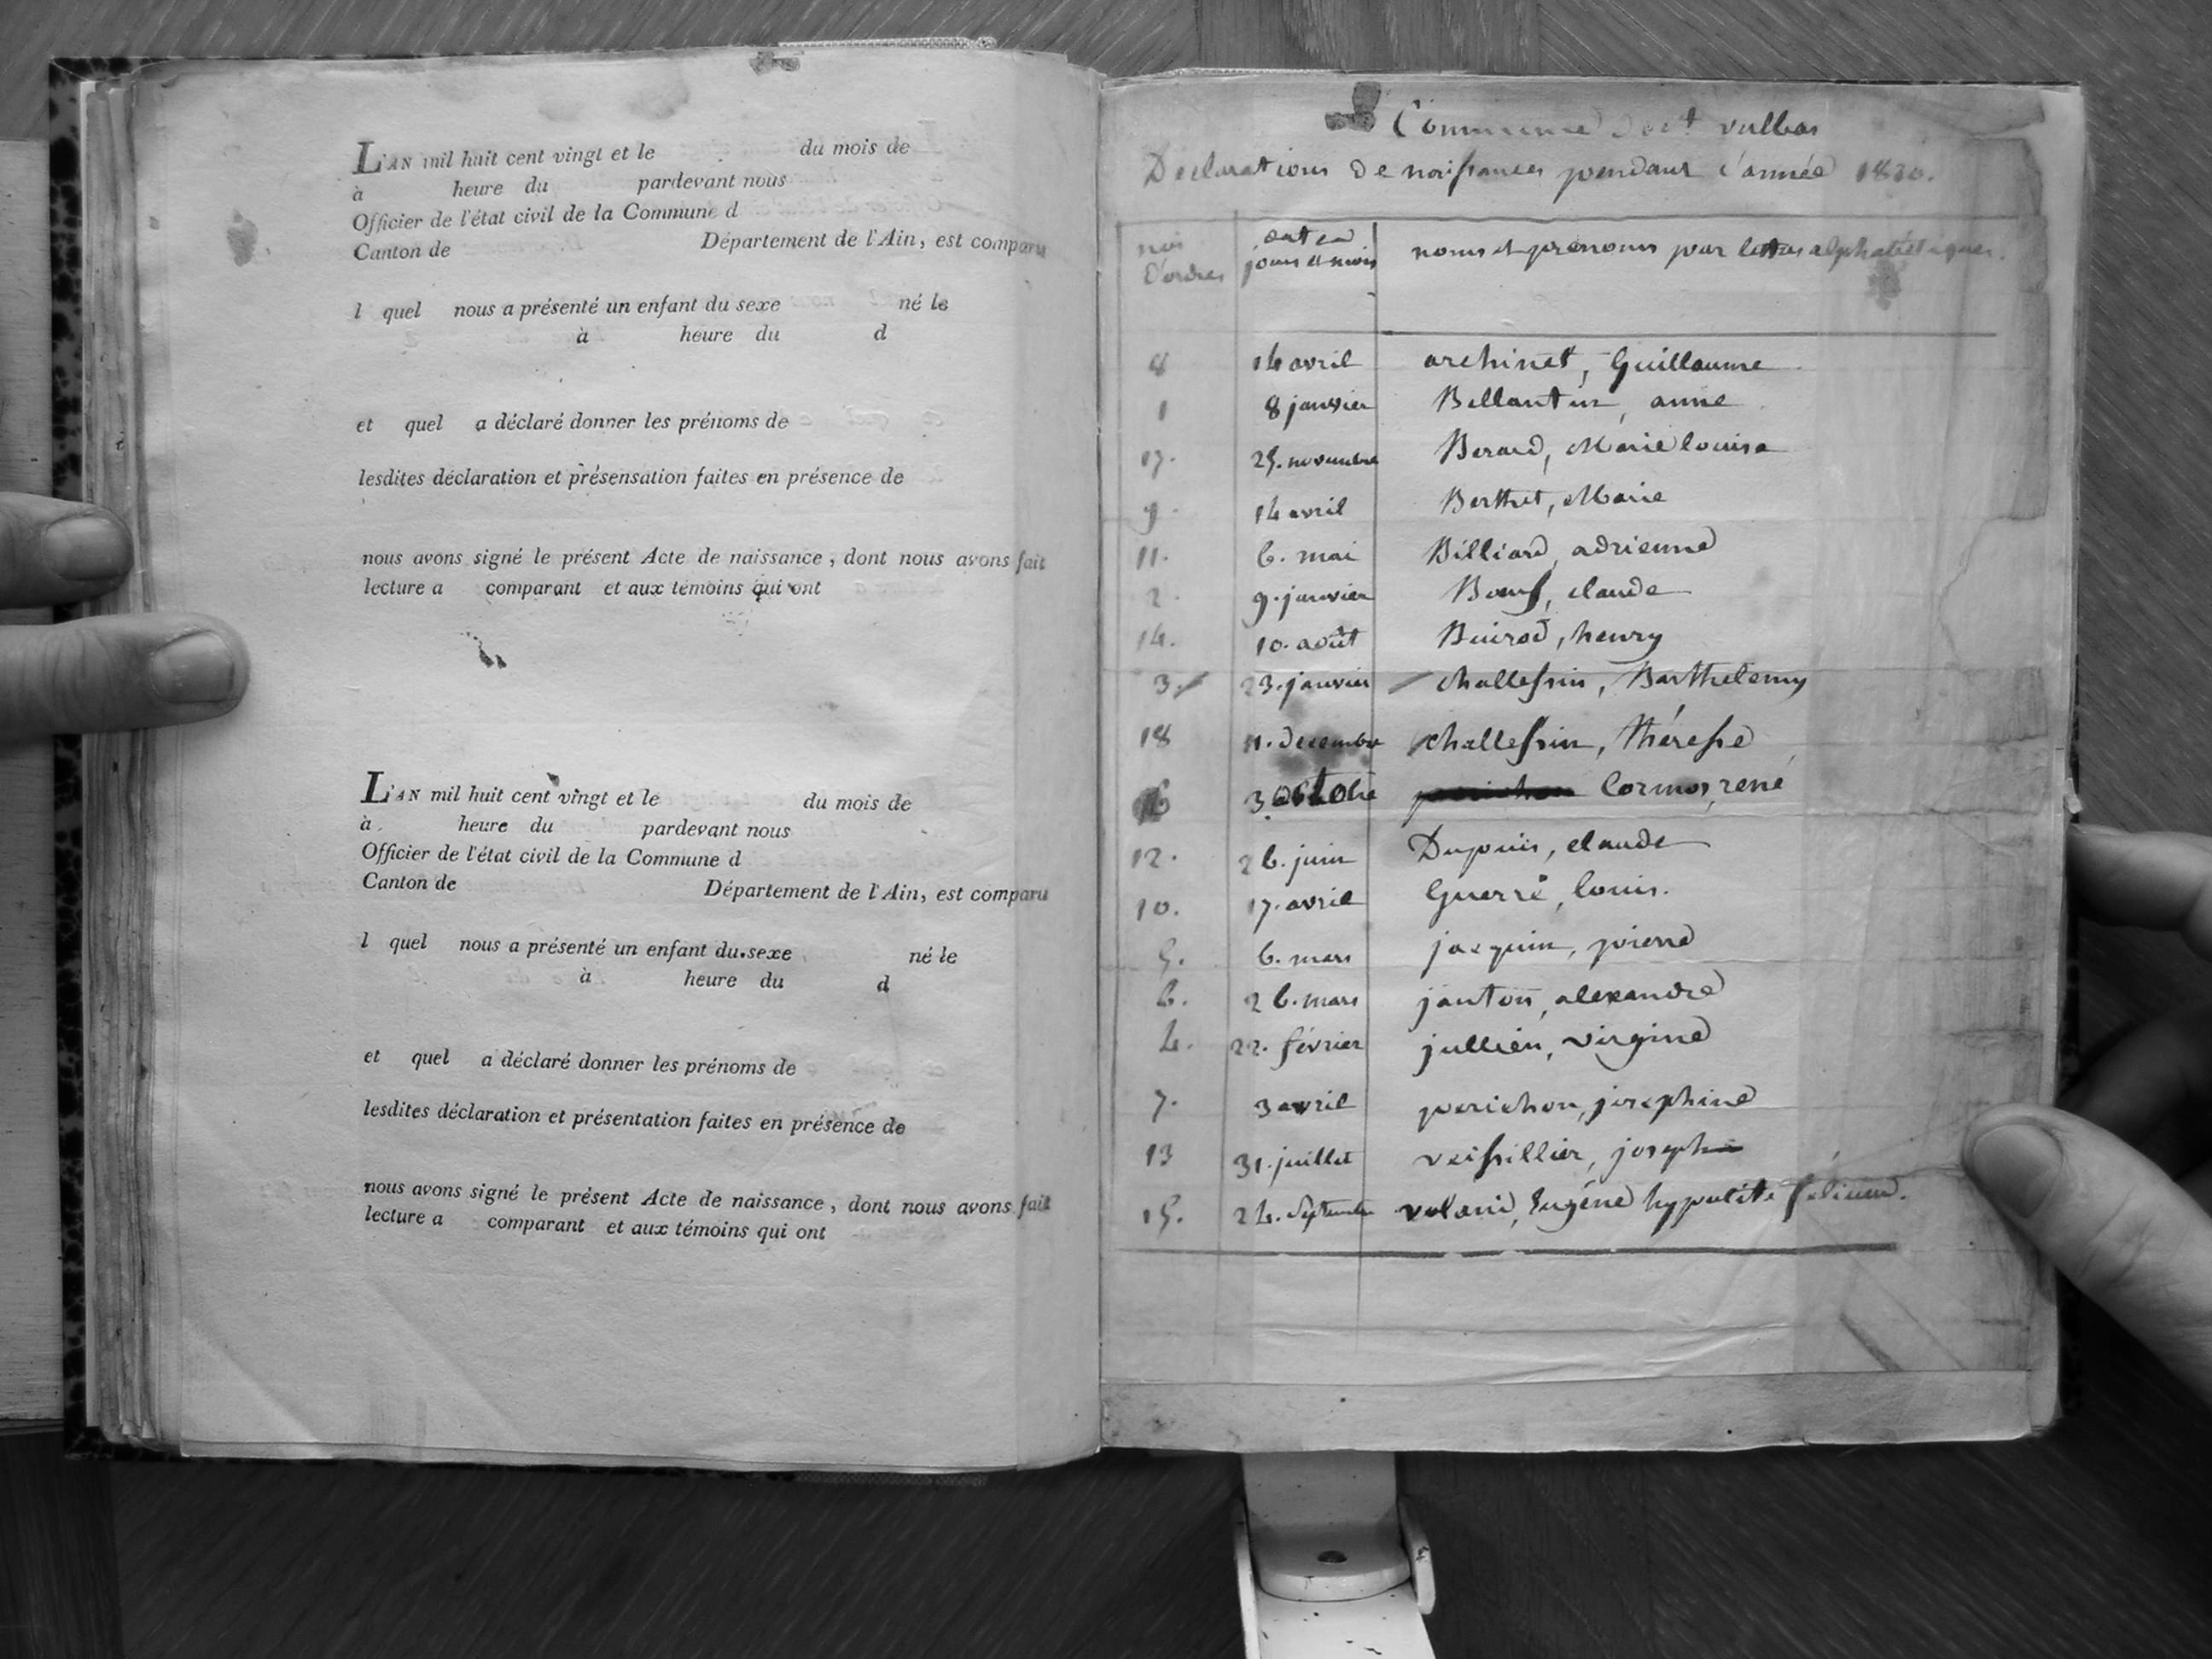 L'AN mil huit cent vingt et le du mois de
à heure du pardevant nous
Officier de l'état civil de la Commune d
Canton de Département de l'Ain, est comparu
l quel nous a présenté un enfant du sexe né le
à heure du d
et quel a déclaré donner les prénoms de
lesdites déclaration et présensation faites en présence de
nous avons signé le présent Acte de naissance, dont nous avons fait
lecture a comparant et aux témoins qui ont
L'AN mil huit cent vingt et le du mois de
à heure du pardevant nous
Officier de l'état civil de la Commune d
Canton de Département de l'Ain, est comparu
l quel nous a présenté un enfant du sexe né le
à heure du d
et quel a déclaré donner les prénoms de
lesdites déclaration et présentation faites en présence de
nous avons signé le présent Acte de naissance, dont nous avons fait
lecture a comparant et aux témoins qui ont
Commune de st vulbas
Declarations de naissances pendant l'année 1820.
nos d'ordres
jours et mois
noms et prenoms par lettres alphabétiques.
8 14 avril archinet, Guillaume
1 8 janvier anne
17. 25. novembre Berard, Marie louise
9. 14 avril Berthet, Marie
11. 6. mai Billiard, adrienne
2. 9. janvier Boeuf, claude
14. 10. août Buirod, henry
3. 23. janvier challessin, Barthelemy
18 11. decembre challessin, théresse
16 3 octobre Cormos, rené
12. 26. juin Dupuis, claude
10. 17. avril Guerre, louis.
5. 6. mars jacquin, pierre
6. 26. mars janton, alexandre
4. 22. février jullien, virgine
7. 3 avril perichon, josephine
13 31. juillet veissillier, joseph
15. 24. septembre Eugéne hypolite